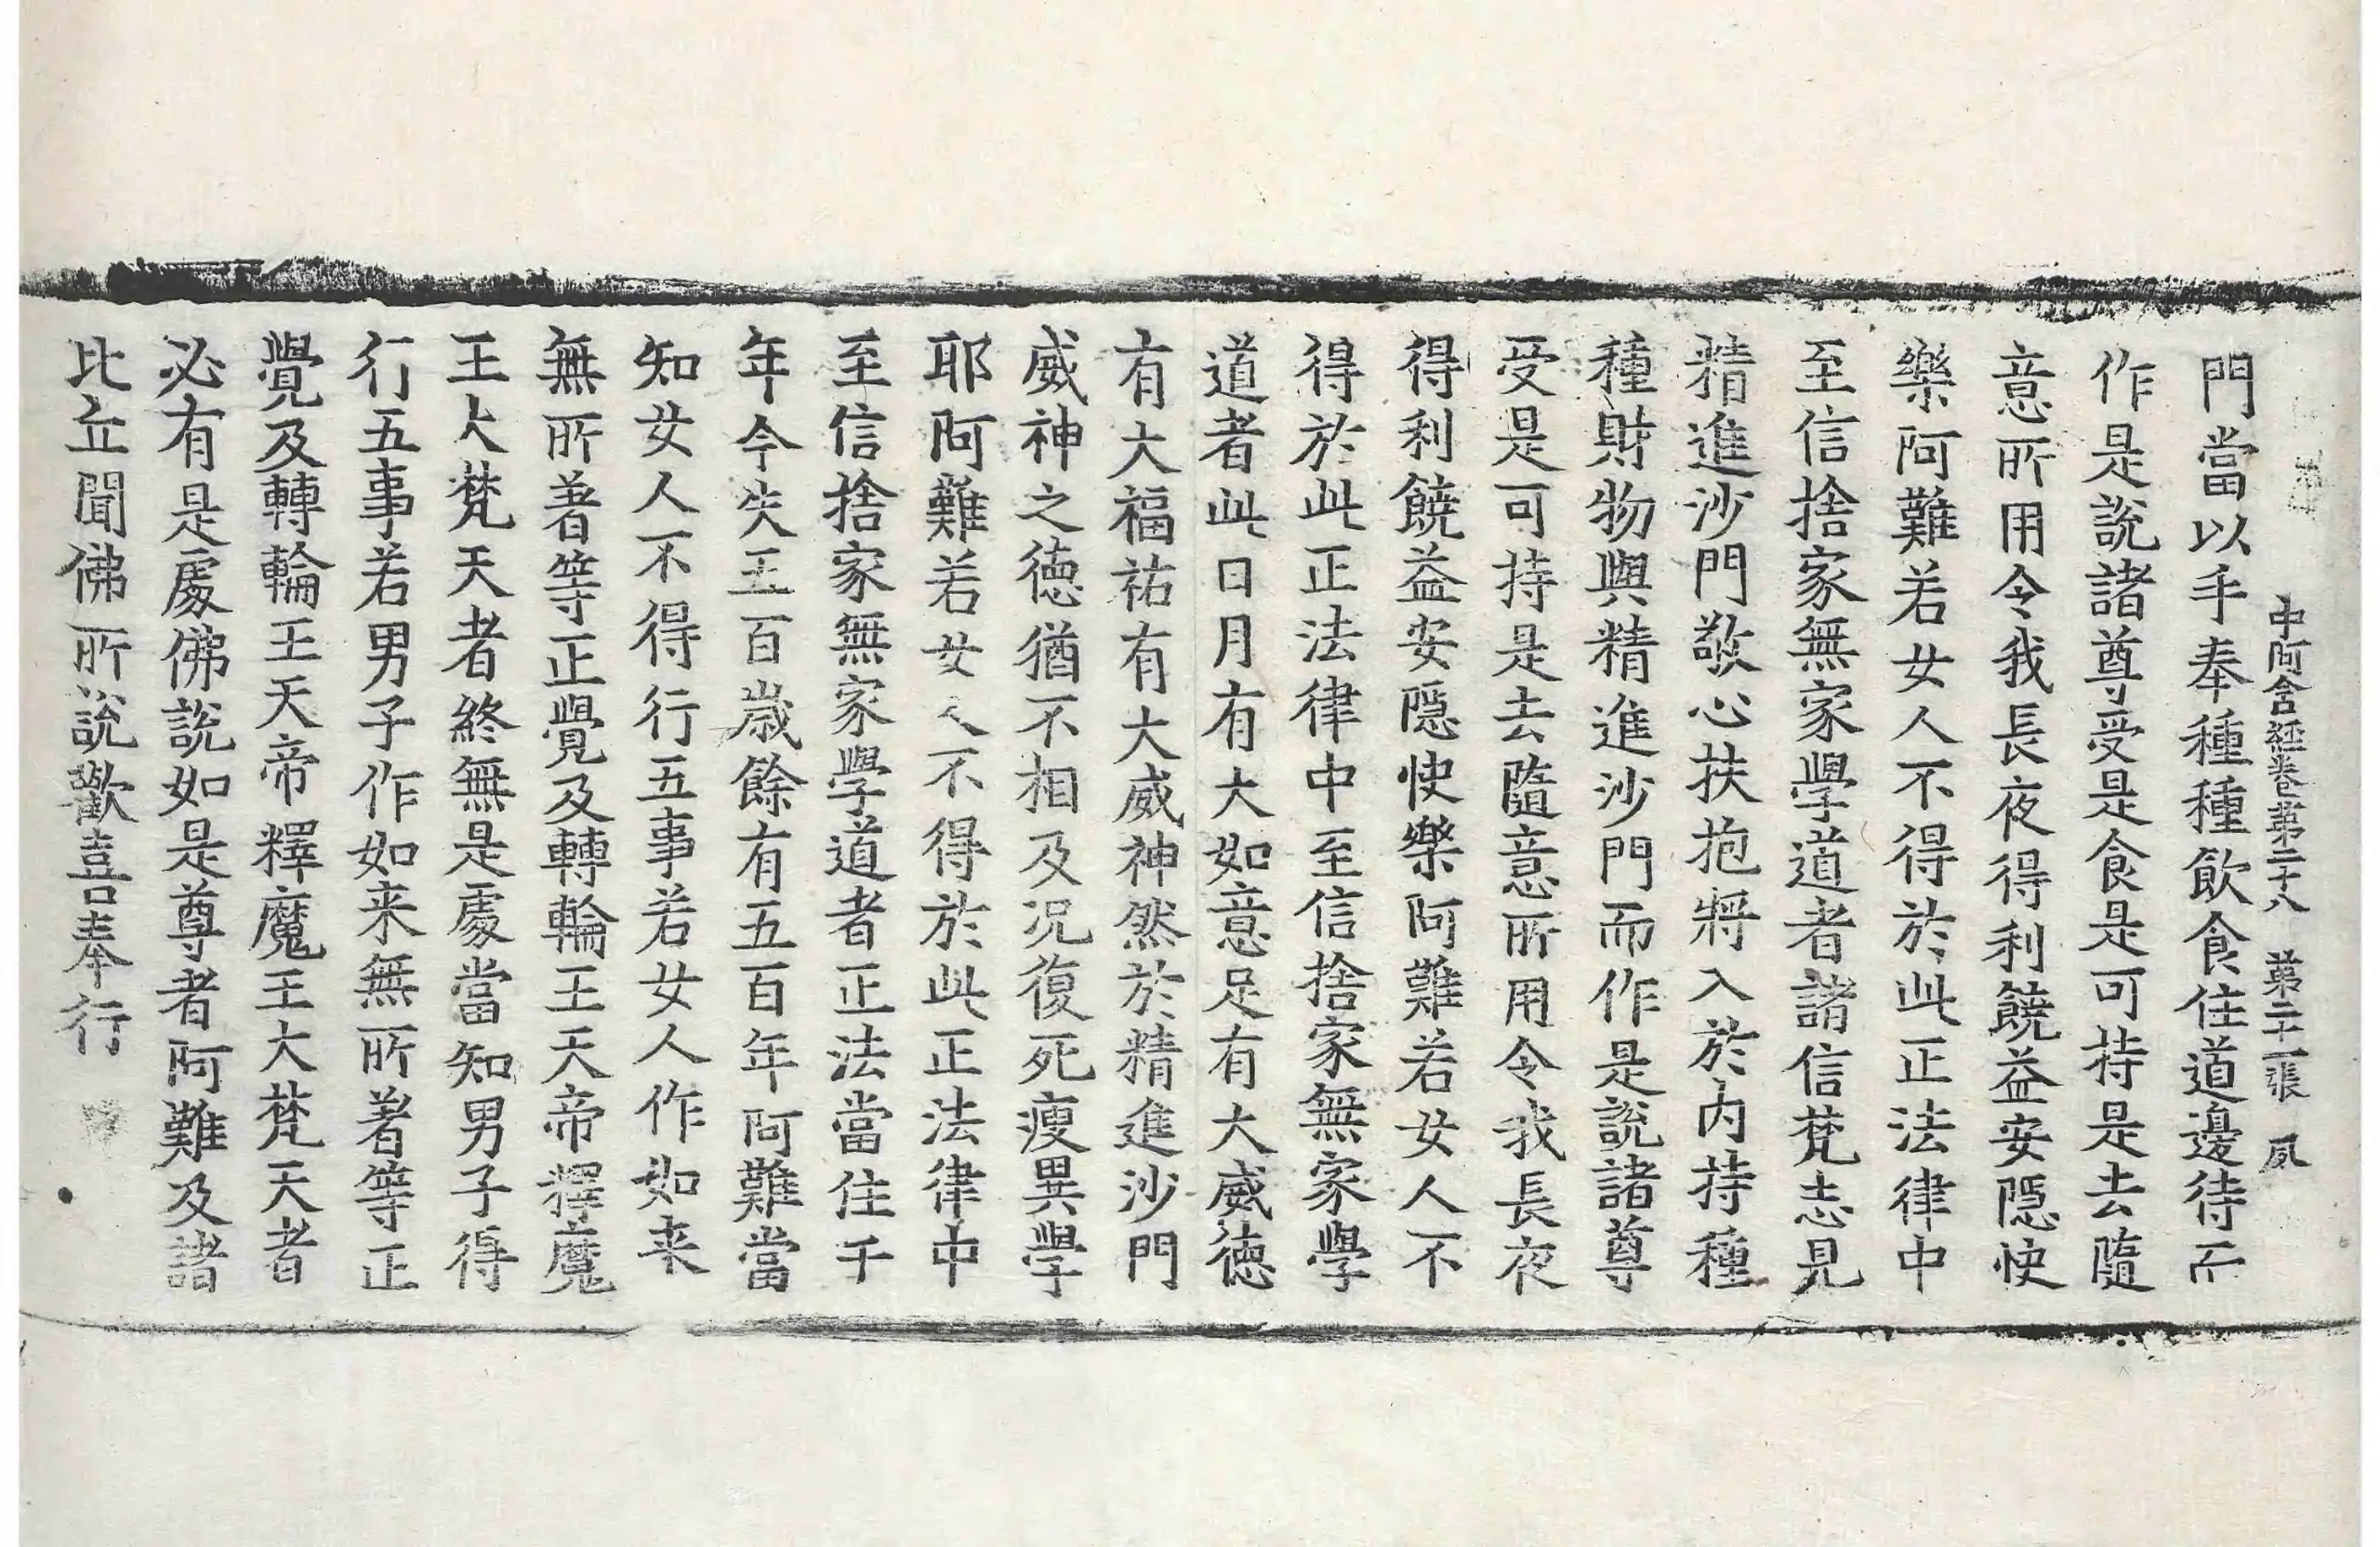 中阿含經卷第二十八 第二十一張 夙
門當以手奉種種飲食住道邊待而
作是說諸尊受是食是可持是去隨
意所用令我長夜得利饒益安隱快
樂阿難若女人不得於此正法律中
至信捨家無家學道者諸信梵志見
精進沙門敬心扶抱將入於內持種
種財物與精進沙門而作是說諸尊
受是可持是去隨意所用令我長夜
得利饒益安隱快樂阿難若女人不
得於此正法律中至信捨家無家學
道者此日月有大如意足有大威德
有大福祐有大威神然於精進沙門
威神之德猶不相及況復死瘦異學
耶阿難若女人不得於此正法律中
至信捨家無家學道者正法當住千
年今失五百歲餘有五百年阿難當
知女人不得行五事若女人作如来
無所著等正覺及轉輪王天帝釋魔
王大梵天者終無是處當知男子得
行五事若男子作如来無所著等正
覺及轉輪王天帝釋魔王大梵天者
必有是處佛說如是尊者阿難及諸
比丘聞佛所說歡喜奉行